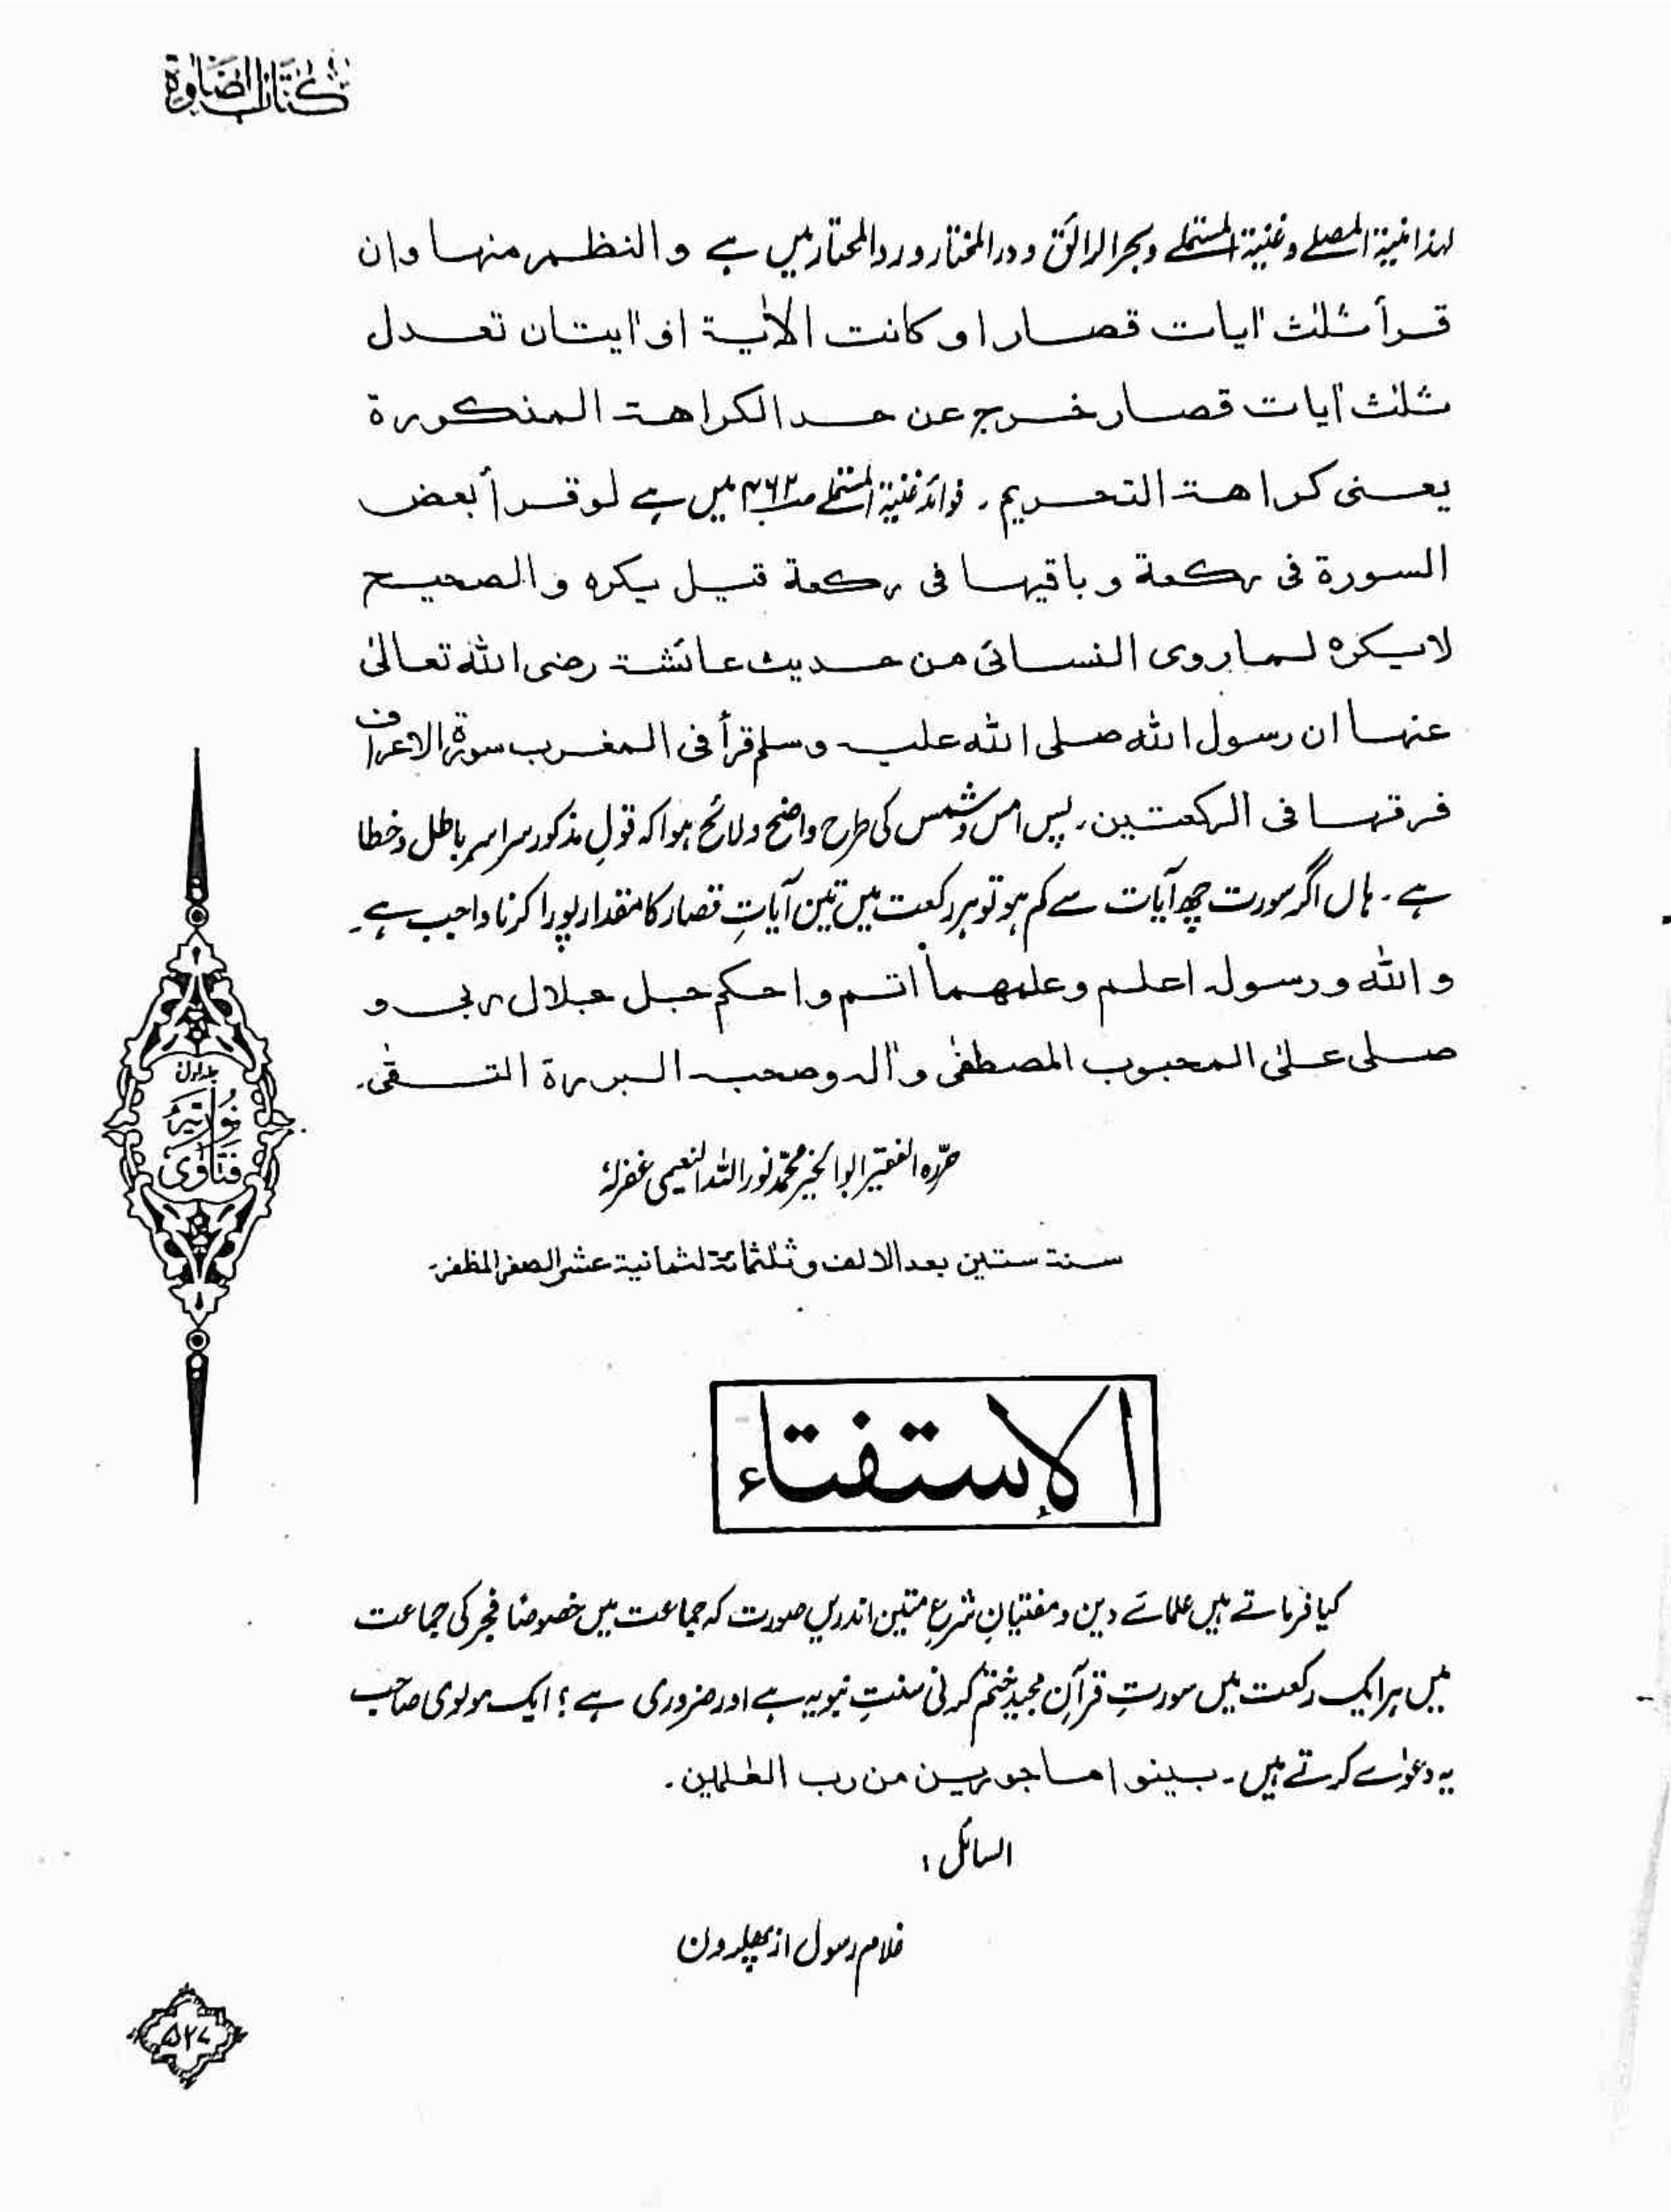 كتاب الصلوٰة
لہذا منیۃ المصلے وغنیۃ المستملے وبحرالرائق ودرالمختار وردالمحتار میں ہے والنظم منہا وان
قرأ ثلٰث اٰیات قصار او کانت الاٰیۃ او اٰیتان تعدل
ثلٰث اٰیات قصار خرج عن حد الکراھۃ المذکورۃ
یعنی کراھۃ التحریم۔ فوائد غنیۃ المستملے ص۴۶۲ میں ہے لو قرأ بعض
السورۃ فی رکعۃ وباقیہا فی رکعۃ قیل یکرہ والصحیح
لایکرہ لما روی النسائی من حدیث عائشۃ رضی اللہ تعالیٰ
عنہا ان رسول اللہ صلی اللہ علیہ وسلم قرأ فی المغرب سورۃ الاعراف
فرقہا فی الرکعتین۔ پس امس و شمس کی طرح واضح ولائح ہوا کہ قولِ مذکور سراسر باطل وخطا
ہے۔ ہاں اگر سورت چھ آیات سے کم ہو تو ہر رکعت میں تین آیاتِ قصار کا مقدار پورا کرنا واجب ہے۔
واللہ ورسولہ اعلم وعلمہما اتم واحکم جل جلال ربی و
صلی علیٰ المحبوب المصطفٰی واٰلہ وصحبہ البررۃ التقٰی۔
حرّرہ الفقیر ابوالخیر محمّد نوراللہ النعیمی غفرلہٗ
سنۃ ستین بعد الالف وثلثمائۃ لثمانیۃ عشر الصفر المظفر۔
جلد اول
فتاویٰ نوریہ
الإستفتاء
کیا فرماتے ہیں علمائے دین ومفتیانِ شرعِ متین اندریں صورت کہ جماعت میں خصوصًا فجر کی جماعت
میں ہر ایک رکعت میں سورتِ قرآنِ مجید ختم کرنی سنتِ نبویہ ہے اور ضروری ہے؟ ایک مولوی صاحب
یہ دعوٰے کرتے ہیں۔ بینوا ماجورین من رب العٰلمین۔
السائل:
غلام رسول از
۵۲۷